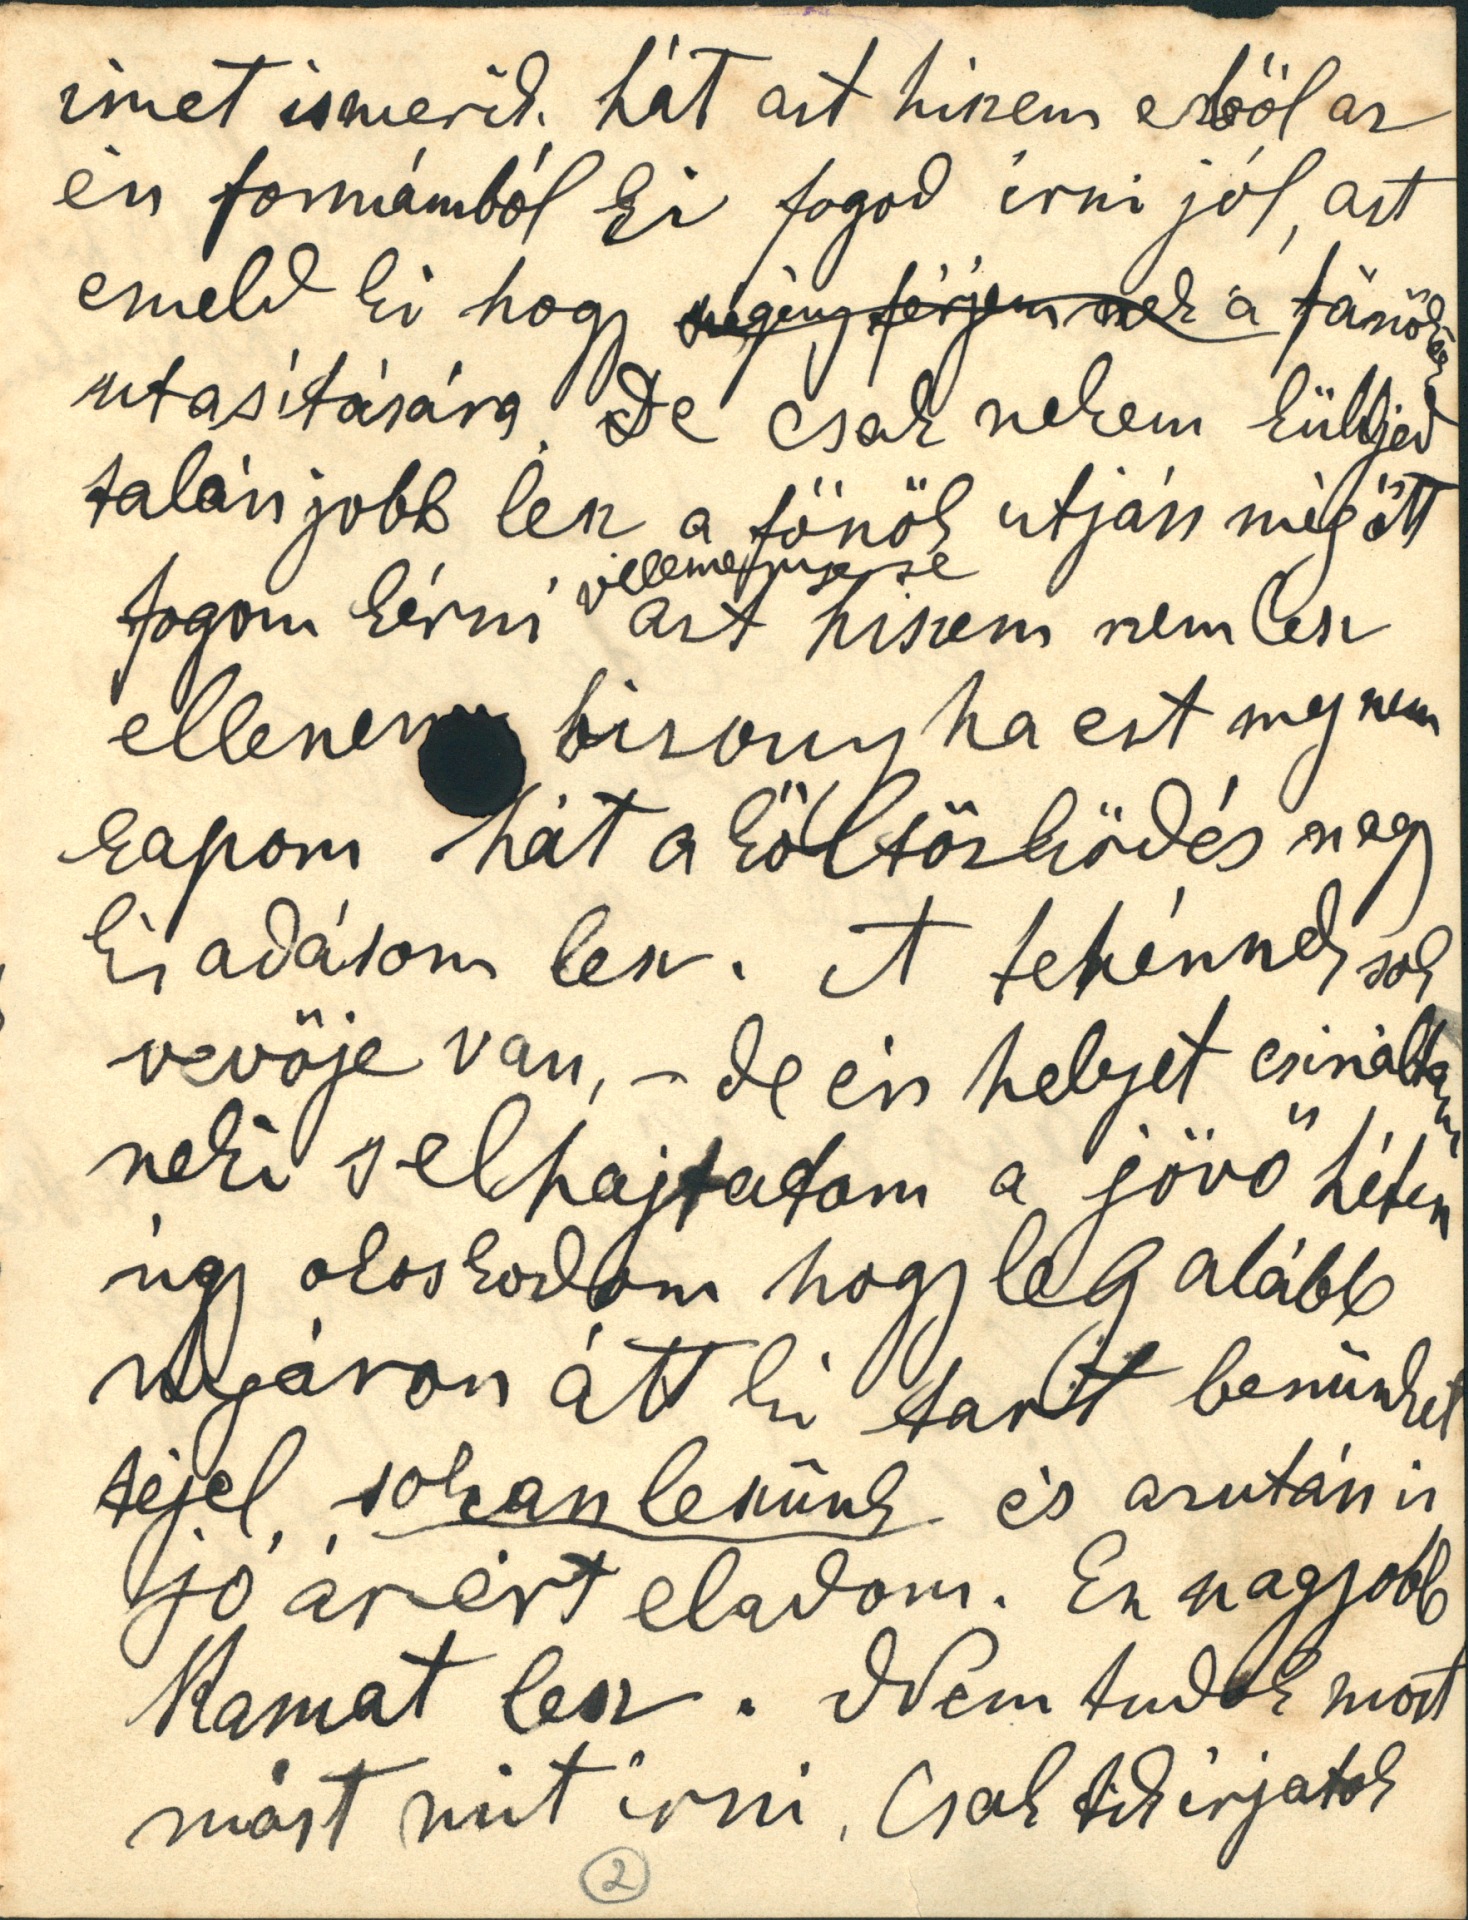 imet ismerik. hát ast hiszem ebböl az
én formámból ki fogod irni jól, ast
emeld ki hogy szegény férjemnek a fönök
utasitására. De csak nekem küldjed
talán jobb lesz a fönök utján még ött
fogom kérni ast hiszem nem lesz
ellenem bizony ha ezt meg nem
kapom hát a költözködés nagy
kiadásom lesz. A tehénnek sok
vevöje van, - de én helyet csináltam
neki s elhajtatom a jövö héten
úgy okoskodom hogy leg alább
nyáron átt ki tart benünket
téjel, sokan leszünk és azután is
jó árért eladom. Ez nagyobb
Kamat lesz. Nem tudok most
mást mit irni, Csak tik irjatok
2